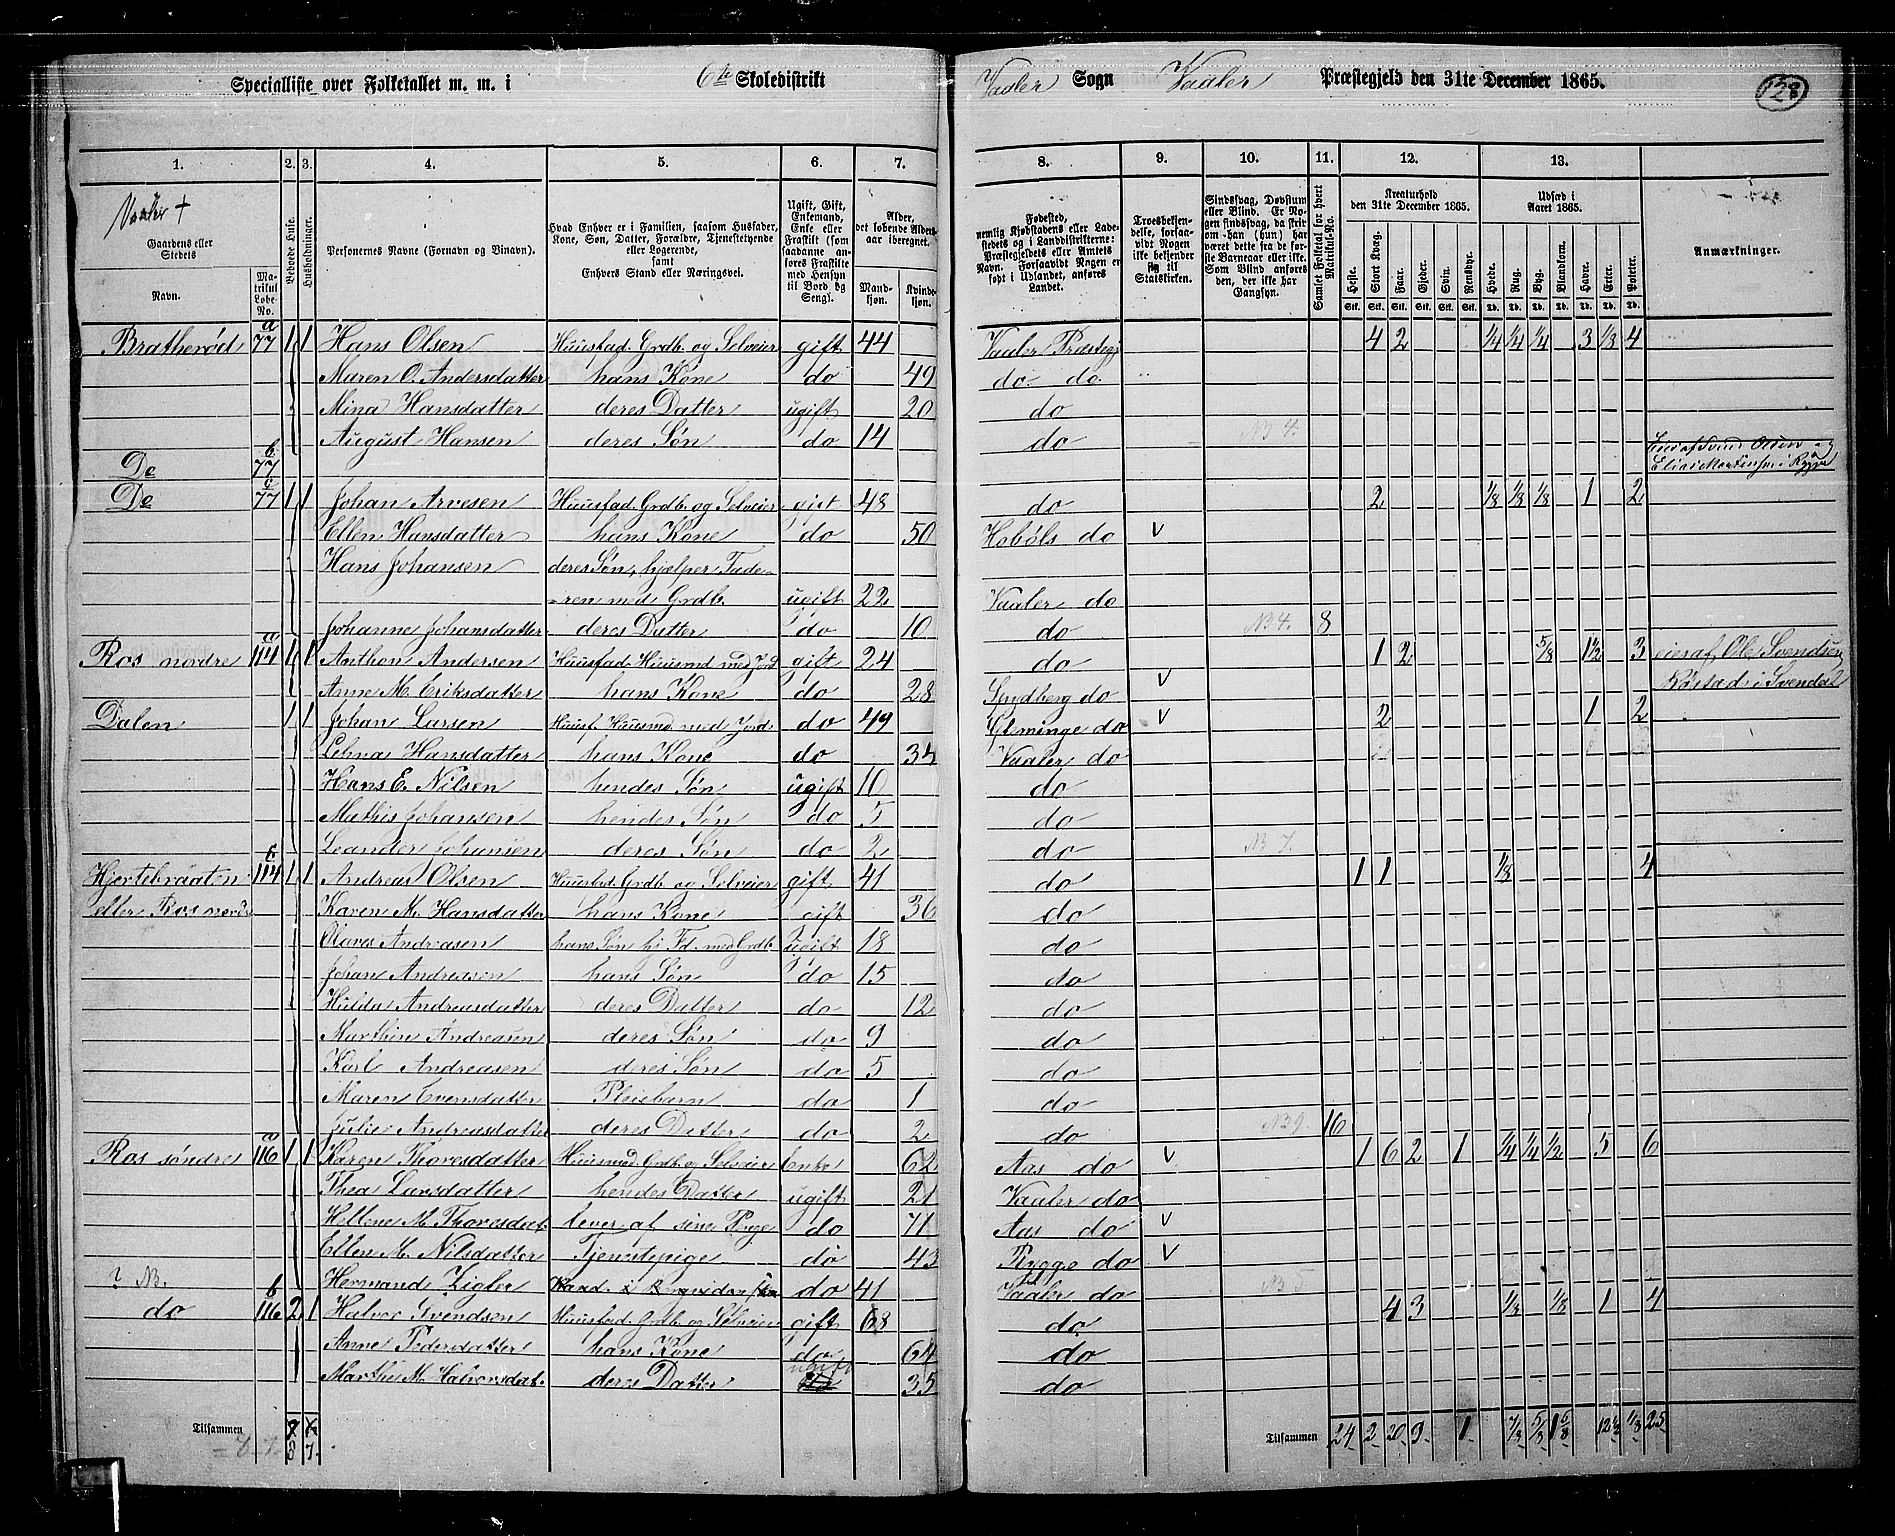 Specialliste over Folketallet m. m. i 6te Skoledistrikt Vaaler Sogn Vaaler Præstegjeld den 31te December 1865. 128
1. 2. 3. 4. 5. 6. 7. 8. 9. 10. 11. 12. 13.
Vaaler +
Gaardens eller Stedets
Navn.
Matrikul Løbe-No.
Beboede Huse.
Husholdninger.
Personernes Navne (Fornavn og Binavn).
Hvad Enhver er i Familien, saasom Husfader, Kone, Søn, Datter, Forældre, Tjenestetyende eller Logerende, samt Enhvers Stand eller Næringsvei.
Ugift, Gift, Enkemand, Enke eller Fraskilt (som saadanne anføres Fraskilte med Hensyn til Bord og Seng).
Alder, det løbende Aldersaar iberegnet.
Mandkjøn. Kvindekjøn.
Fødested, nemlig Kjøbstadens eller Ladestedets og i Landdistrikterne: Præstegjeldets eller Amtets Navn. Forsaavidt Nogen er født i Udlandet, anføres Landet.
Troesbekjendelse, forsaavidt Nogen ikke bekjender sig til Statskirken.
Sindssvag, Døvstum eller Blind. Er Nogen sindssvag, da skrives om han (hun) har været dette fra de første Barneaar eller ikke. Som Blind anføres den, der ikke har Gangsyn.
Samlet Folketal for hvert Matrikul-No.
Kreaturhold den 31te December 1865.
Heste. Stort Kvæg. Faar. Gjeder. Svin. Rensdyr.
Udsæd i Aaret 1865.
Hvede. Rug. Byg. Blandkorn. Havre. Erter. Poteter.
Anmærkninger.
Bratherød 77 a 1 1 Hans Olsen Huusfad. Grdb. og Selveier gift 44 Vaaler Præstegj 4 2 1/4 1/4 1/4 3 1/3 4
Maren O. Andersdatter hans Kone do 49 do do
Mina Hansdatter deres Datter ugift 20 do
August Hansen deres Søn do 14 do N3 4.
Do 77 b
Do 77 c 1 1 Johan Arvesen Huusfad. Grdb. og Selveier gift 48 do 2 1/8 1/8 1/8 1 2
Ellen Hansdatter hans Kone do 50 Hobøls do v
Hans Johansen deres Søn, hjælper Fade-
ren med Grdb. ugift 22 Vaaler do
Johanne Johansdatter deres Datter do 10 do N3 4. 8
Ros nordre 114 a 1 1 Anthon Andersen Huusfad. Huusmd med Jord gift 24 do 1 2 5/8 1 1/2 3 eies af Ole Svendsen
Anne M. Eriksdatter hans Kone do 28 Spydberg do v
Dalen 1 1 Johan Larsen Huusf. Huusmd med Jord do 49 Glemminge do v 2 1 2
Hansdatter hans Kone do 34 Vaaler do
Hans E. Nilsen hendes Søn ugift 10 do
Mathis Johansen hendes Søn do 5 do
Leander Johansen deres Søn do 2 do N3 7.
Hjertebraaten 114 1 1 Andreas Olsen Huusfad. Grdb og Selveier gift 41 do 1 1 1/8 4
eller Ros nordr Karen M. Hansdatter hans Kone gift 36 do
Olaves Andreasen hans Søn hj Fd. med Grdb ugift 18 do
Johan Andreasen hans Søn do 15 do
Hulda Andreasdatter deres Datter do 12 do
Marthin Andreasen deres Søn do 9 do
Karl Andreasen deres Søn do 5 do
Maren Evensdatter Pleiebarn do 1 do
Julie Andreasdatter deres Datter do 2 do N3 9. 16
Ros søndre 116 a 1 1 Karen Thoresdatter Huusmod. Grdb. og Selveier Enke 62 Aas do v 1 6 2 1 1/4 1/4 1/2 5 6
Thea Larsdatter hendes Datter ugift 21 Vaaler do
Hellene M. Thoresdat. lever af sine Penge do 71 Aas do v
Ellen M. Nilsdatter Tjenestepige do 43 Rygge do v
? N3. Hermand Zigler do 41 Vaaler do N3 5
do 116 b 2 1 Halvor Svendsen Huusfad. Grdb og Selveier gift 68 do 4 3 1/8 1/8 1 4
Anne Pedersdatter hans Kone do 64 do
Marthe M. Halvorsdat. deres Datter ugift 35 do
Tilsammen 8 7. Tilsammen 24 2 20 9 1 7/8 5/8 1 5/8 12 1/2 1/3 25